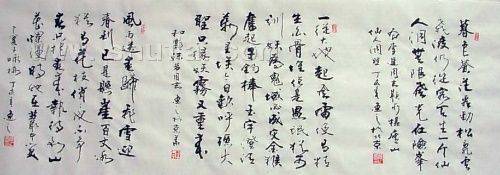 暮色苍茫看劲松乱云
飞渡仍从容天生一个仙
人洞无限风光在险峰
仙人洞照
一从大地起风雷便有精
生白骨堆僧是愚氓犹可
训妖为鬼蜮必成灾金猴
奋起千钧棒玉宇澄清
万里埃今日欢呼孙大
圣只缘妖雾又重来
和郭沫若同志
风雨送春归飞雪迎
春到已是悬崖百丈冰
犹有花枝俏俏也不争
春只把春来报待到山
花烂漫时她在丛中笑
卜算子咏梅